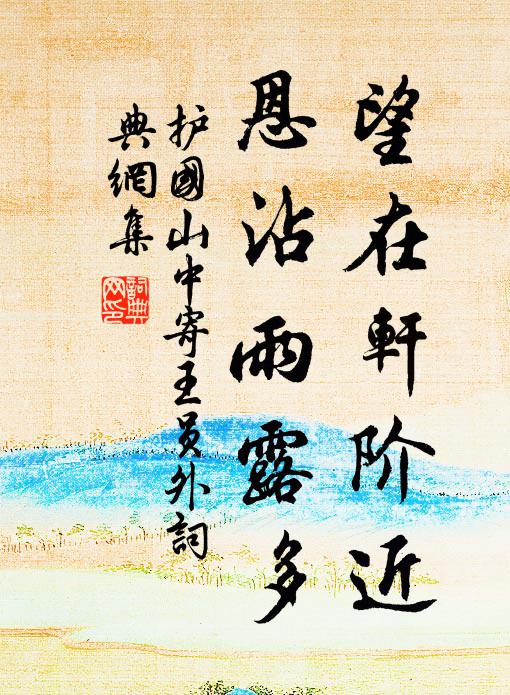 望在軒阶近
恩沾雨露多
护國山中寄王员外詞
典網集
詞典网印